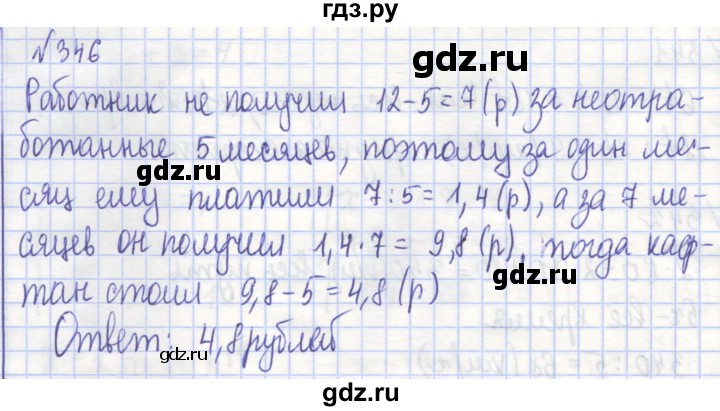 гдз.ру
№346
Работник не получил 12-5=7(р) за неотра-
ботанные 5 месяцев, поэтому за один ме-
сяц ему платили 7:5=1,4(р), а за 7 ме-
сяцев он получил 1,4·7= 9,8(р), тогда каф-
тан стоил 9,8-5=4,8(р)
Ответ: 4,8 рублей
gdz.ru
gdz.ru
gdz.ru
gdz.ru
gdz.ru